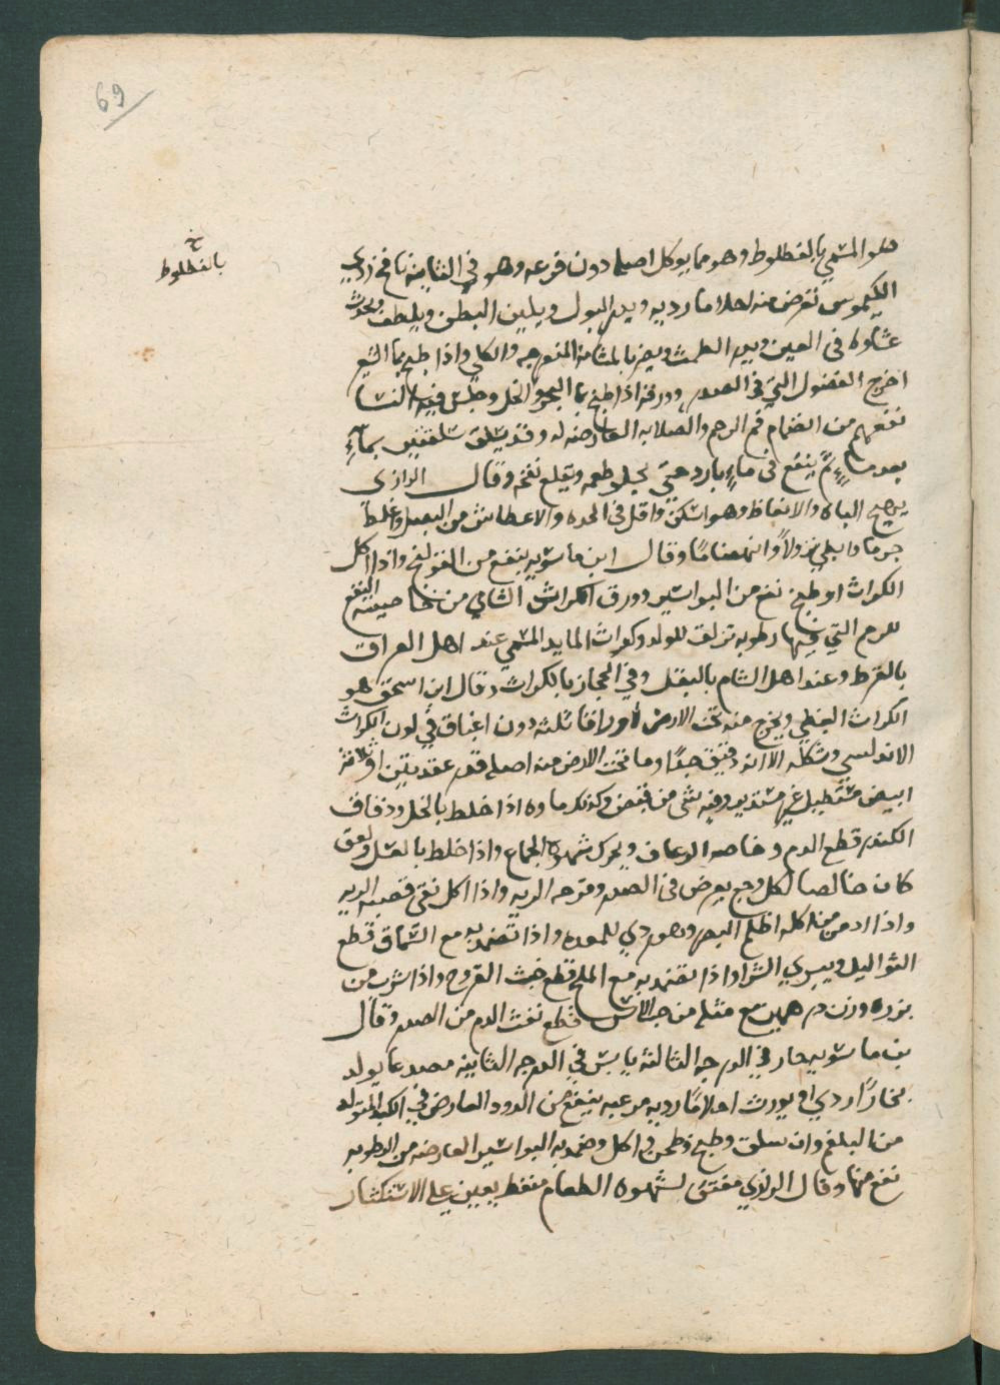 69
خ
بالقفلوط
هو المسمي بالقفلوط وهو مما يوكل اصله دون فرعه وهو في الثانيه نافخ ردي
الكيموس تعرض منه احلاما رديه ويدر البول ويلين البطن ويلطف ويحدث
غشاوه في العين ويدر الطمث ويضر بالمثانه المتقرحه والكلي واذا طبخ بما الشعير
اخرج الفضول التي في الصدر وورقه اذا طبخ بما البحر والخل وجلس فيه النسا
نفعهم من انضمام فم الرحم والصلابه العارضه له وقد يسلق سلقتين بماءٍ
بعد ماءٍ ثم ينقع في ماءٍ بارد حتي يحلو طعمه ويقلع نفخه وقال الرازي
يهيج الباه والانعاظ وهو اسكن واقل في الحده والاعطاش من البصل واغلظ
جرما وابطي نزولاً وانهضاما وقال ابن ماسويه ينفع من القولنج واذا اكل
الكراث او طبخ نفع من البواسير وورق الكراث الشامي من خاصيته النفع
للرحم التي فيها رطوبه تزلق للولد وكراث المايده المسمي عند اهل العراق
بالقرط وعند اهل الشام بالبقل وفي الحجاز بالكراث وقال ابن اسحق هو
الكراث النبطي ويخرج منه تحت الارض اوراقا ثلثه دون اغناق في لون الكراث
الاندلسي وشكله الا انه دقيق جدًا وما تحت الارض منه اصله قدر عقدتين او
ابيض مستطيل غير مستدير وفيه شي من قبض وكذلك ماوه اذا خلط بالخل ودقاق
الكندر قطع الدم وخاصه الرعاف ويحرك شهوة الجماع واذا خلط بالعسل ولعق
كان صالحا لكل وجع يعرض في الصدر وقرحه الريه واذا اكل نقي قصبه الريه
واذا ادمن من اكله اظلم البصر وهو ردي للمعده واذا تضمد به مع السماق قطع
الثواليل ويبري الشرا واذا تضمد به مع الملح قطع خبث القروح واذا شرب من
بزره وزن درهمين مع مثله من حب الاس قطع نفث الدم من الصدر وقال
بن ماسويه حار في الدرجه الثالثة يابس في الدرجه الثانيه مصدعا يولد
بخارًا رديا ويورث احلامًا رديه مرعبه ينفع من الدود العارض في الكبد المتولده
من البلغم وان سلق وطبخ وطحن واكل وضمد به البواسير العارضه من الرطوبه
نفع منها وقال الرازي مفتق لشهوه الطعام منعظ يعين علي الاستكثار